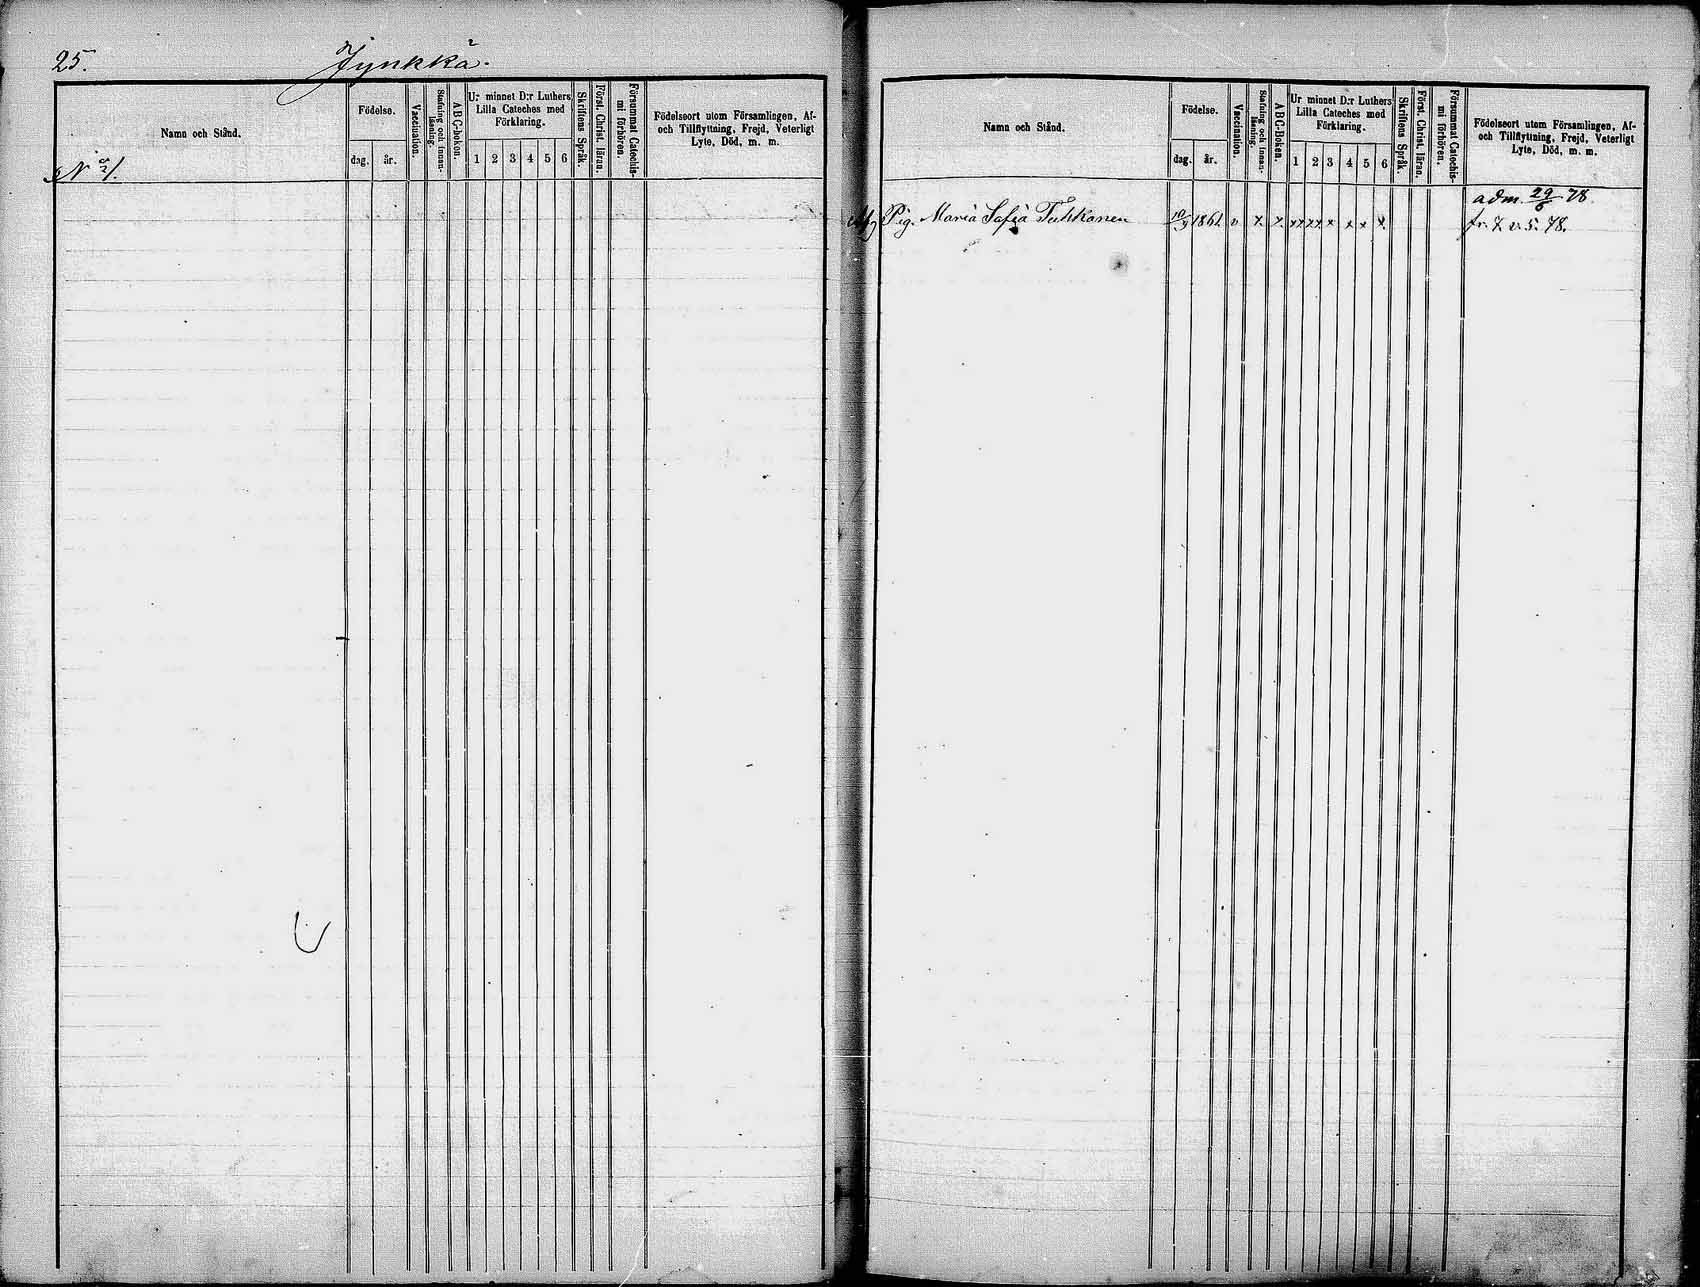 25.
Jynkkä.
Namn och Stånd.
Födelse.
dag. år.
Vaccination.
Stafning och Innanläsning.
ABC-bokon.
Ur minnet D:r Luthers
Lilla Cateches med
Förklaring.
1 2 3 4 5 6
Skriftens Språk.
Först. Christ. läran.
Försummat Catechismi förhören.
Födelseort utom Församlingen, Af-
och Tillflyttning, Frejd, Veterligt
Lyte, Död, m. m.
Namn och Stånd.
Födelse.
dag. år.
Vaccination.
Stafning och Innanläsning.
ABC-Boken.
Ur minnet D:r Luthers
Lilla Cateches med
Förklaring.
1 2 3 4 5 6
Skriftens Språk.
Först. Christ. läran.
Försummat Catechismi förhören.
Födelseort utom Församlingen, Af-
och Tillflyttning, Frejd, Veterligt
Lyte, Död, m. m.
adm. 29/6 78.
Pig. Maria Sofia Tukkonen 10/9 1861 v x x xx xx x x x x